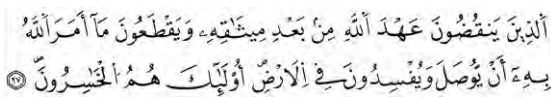 اَلذِينَ يَنقُضُونَ عَهْدَ اَللَّهِ مِنۢ بَعْدِ مِيثَٰقِهِۦ وَيَقْطَعُونَ مَآ أَمَرَ اَللَّهُ
بِهِۦٓ أَنْ يُّوصَلَ وَيُفْسِدُونَ فِے اِلَارْضِۖ أُوْلَٰٓئِكَ هُمُ اُلْخَٰسِرُونَۖ ۝٢٧